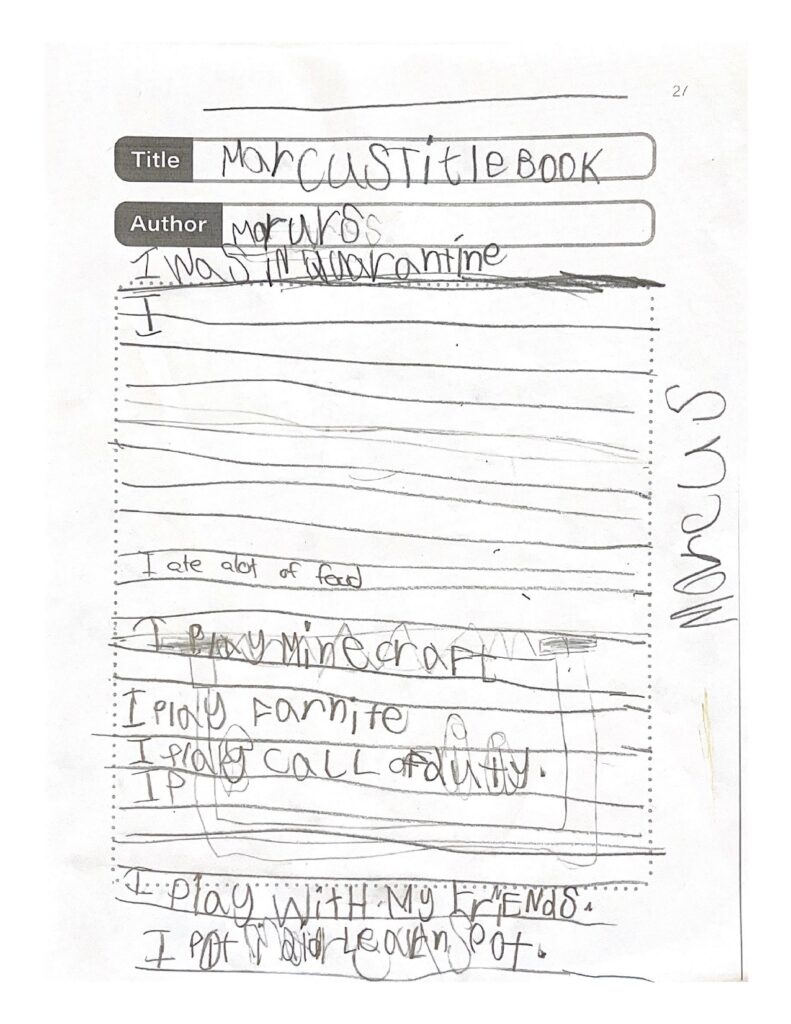 21
Title MarcusTitleBOOK
Author
I was in quarantine
I
I ate alot of food
I PLAY MineCraFt
I Play Farnite
I Play CaLL oF duty.
IP
I Play with My FriENdS.
I
Marcus